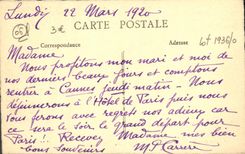 Lundy 22 Mars 1920
3€
CARTE POSTALE
Correspondance
Adresse
Madame
Nous profitons mon mari et moi de
nos derniers beaux jours et comptons
rentrer à Cannes jeudi matin - Nous
déjeunerons à l'Hôtel de Paris puis nous
vous ferons avec regrets nos adieux car
ce sera le soir, le grand départ pour
Paris!! Recevez Madame mes bien
bons souvenirs